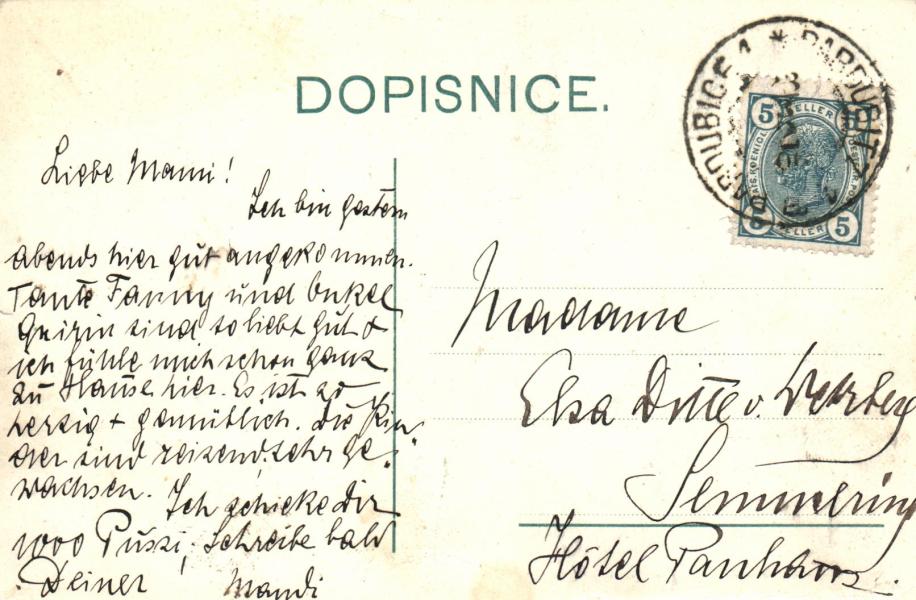 DOPISNICE.
PARDUBICE 1 * PARDUBITZ 1
5 HELLER 5
5 HELLER 5
Liebe Mami!
Ich bin gestern
abends hier gut angekommen.
Tante Fanny und Onkel
sind so lieb & gut &
ich fühle mich schon ganz
zu Hause hier. Es ist so
herzig + gemütlich. Die Kin-
der sind reizend, sehr ge-
wachsen. Ich schicke Dir
1000 Pussi, schreibe bald
Deiner Mandi
Madame
Elsa Ditte v.
Semmering
Hôtel Panhans.